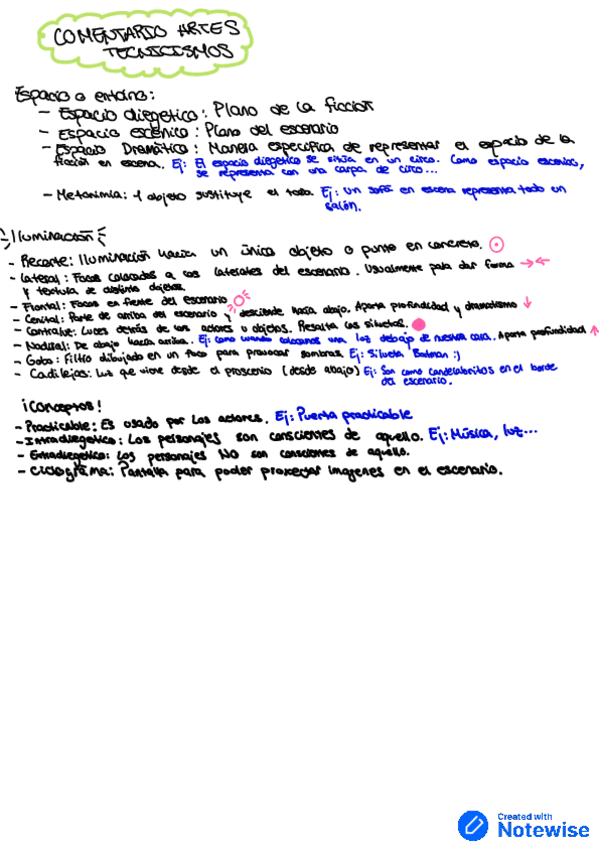 COMENTARIO ARTES
TECNICISMOS
Espacio o entorno:
- Espacio diegetico: Plano de la ficcion
- Espacio escénico: Plano del escenario
- Espacio Dramático: Manera especifica de representar el espacio de la
ficción en escena. Ej: El espacio diegetico se sitúa en un circo. Como espacio escenico,
se representa con una carpa de circo...
- Metonimia: 1 objeto sustituye el todo. Ej: Un sofá en escena representa todo un
salón.
Iluminación
- Recorte: Iluminación hacia un único objeto o punto en concreto.
- Lateral: Focos colocados a los laterales del escenario. Usualmente para dar forma
y textura de distinto objetos.
- Frontal: Focos en frente del escenario
- Cenital: Parte de arriba del escenario y desciende hacia abajo. Aporta profundidad y dramatismo
- Contraluz: Luces detrás de los actores u objetos. Resalta las siluetas.
- Nadiral: De abajo hacia arriba. Ej: como cuando colocamos una luz debajo de nuestra cara. Aporta profundidad
- Gobo: Filtro dibujado en un foco para provocar sombras. Ej: Silueta Batman :)
- Cadilejas: Luz que viene desde el proscenio (desde abajo) Ej: Son como candelabritos en el borde
del escenario.
¡Conceptos!
- Practicable: Es usado por los actores. Ej: Puerta practicable
- Intradiegetico: Los personajes son conscientes de aquello. Ej: Música, luz...
- Extradiegetico: Los personajes NO son conscientes de aquello.
- Ciclograma: Pantalla para poder proyectar imagenes en el escenario.
Created with
Notewise